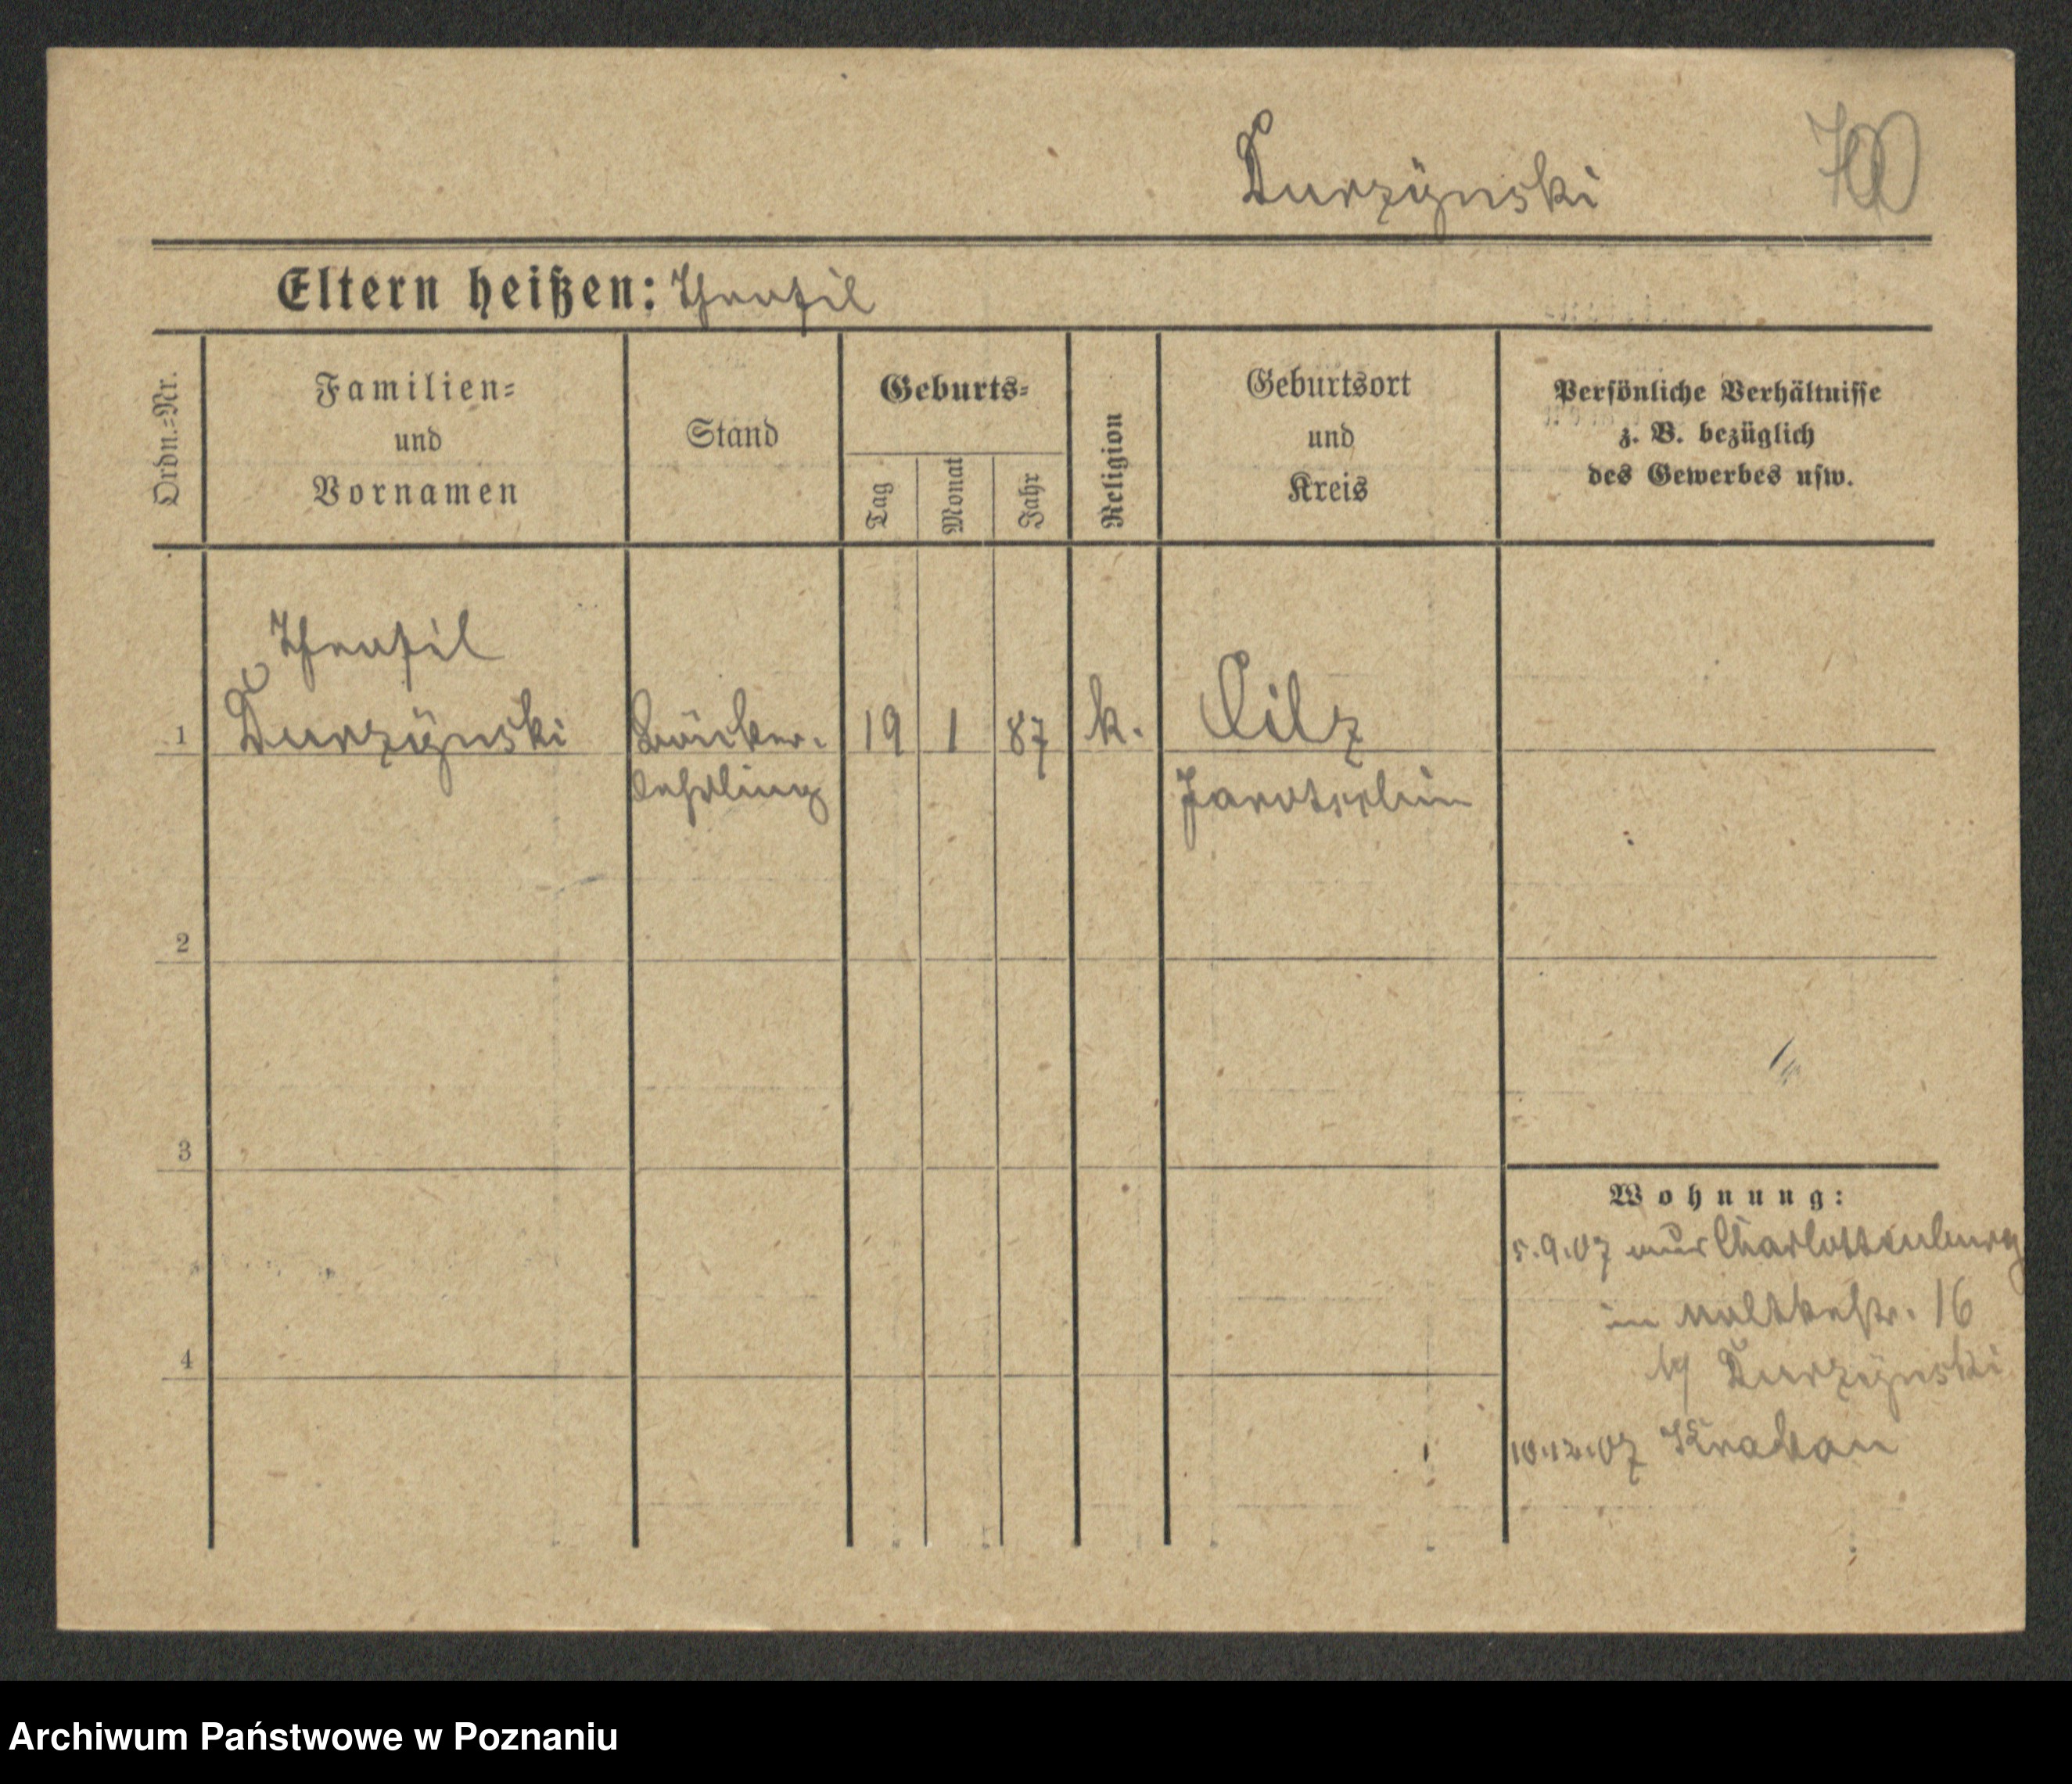 Durzÿnski
Eltern heißen: Theofil
Ordn.=Nr.
Familien=
und
Vornamen
Stand
Geburts=
Tag
Monat
Jahr
Religion
Geburtsort
und
Kreis
Persönliche Verhältnisse
z. B. bezüglich
des Gewerbes usw.
Theofil
1 Durzÿnski Bäcker. 19 1 87 k. Cilz
lehrling Jarotschin
2
3
4
Wohnung:
5.9.07 aus Charlottenburg
in Moltkestr. 16
b/ Durzÿnski
10.12.07 Krakau
Archiwum Państwowe w Poznaniu